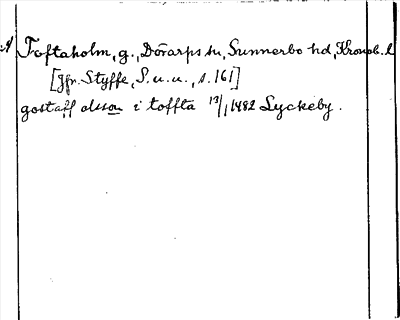 A Toftaholm, g., Dörarps sn, Sunnerbo hd, Kronob. l
[Jfr. Styffe, S.u.u., s. 161]
gostaff olsson i toffta 13/1 1482 Lyckeby.